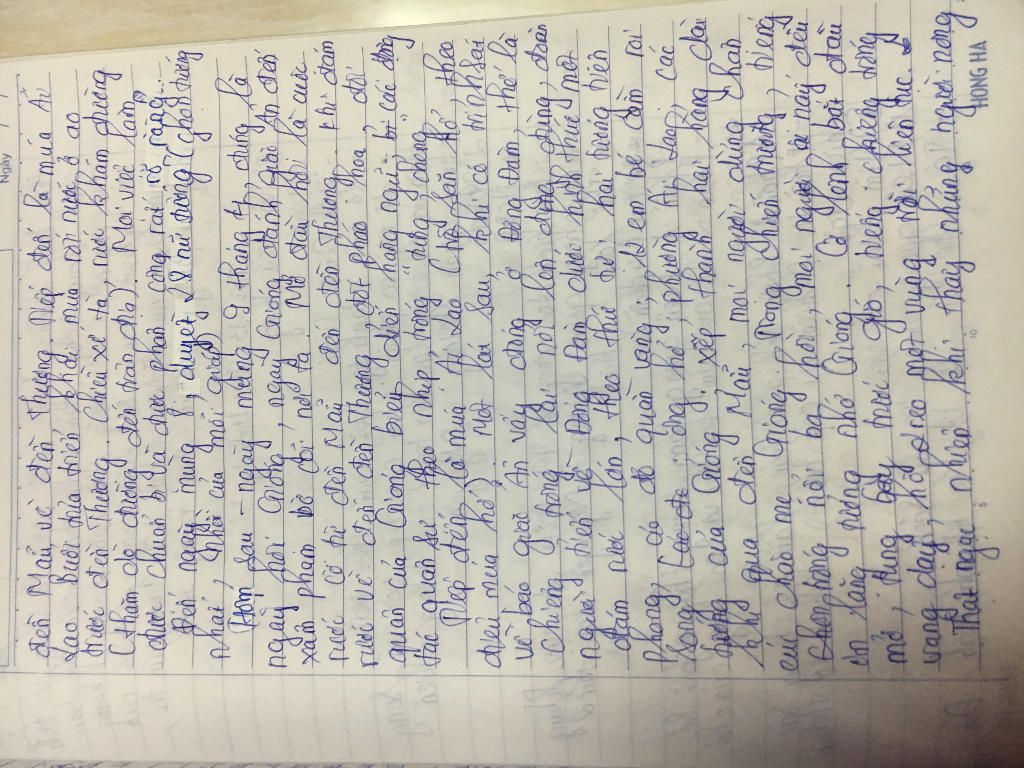 Ngày
đền Mẫu về đền Thượng. Tiếp đến là múa Ải
Lao. Buổi trưa diễn phải múa rối nước ở ao
trước đền Thượng. Chiều xế tà, rước khám đường
(thăm dò đường đến trận địa). Mọi việc làm
được chuẩn bị và được phân công rất rõ ràng.
Đến ngày mùng 8, duyệt 28 nữ tướng (chọn tướng
nhài, ngồi của mỗi giáp).
Hôm sau - ngày mồng 9 tháng 4, đúng là
ngày hội Gióng, ngày Gióng đánh giặc Ân đến
xâm phạm bờ cõi nước ta. Mở đầu hội là cuộc
rước cờ từ đền Mẫu đến đền Thượng. Khi đám
rước về đến đền Thượng, đốt pháo hoa, đội
quân của Gióng biểu diễn hàng ngũ, bị các động
tác quân sự theo nhịp, trong "dùng dùng chung
Tiếp đến là múa Ải Lao (hát săn hổ, theo
điệu múa hổ). Một lát sau khi có trinh sát
về báo giặc Ân vây dóng ở Đống Đàm thế là
chiêng trống lại nổi lên, đùng đùng, đoàn
người tiến về Đống Đàm dưới hình thức một
đám rước lớn, theo thứ tự: hai trung tiên
phong, các đô quân vàng, 12 em bé cầm roi
song (các đô tùng hổ), phường Ải Lao, các
tướng của Gióng xếp thành hai hàng dài
khi qua đền Mẫu, mọi người dừng chân
cúi chào mẹ Gióng trong thiên nhường, biêng
Chiêng trống nổi ba hồi, mọi người ai nấy đều
im lặng tưởng nhớ Gióng. Cờ lệnh bắt đầu
mở, tung bay trước gió, tiếng chiêng trống
vang dậy, hò dreo một vùng trời liên tục.
Thật ngạc nhiên khi thấy những người nông
HONG HA
5
10